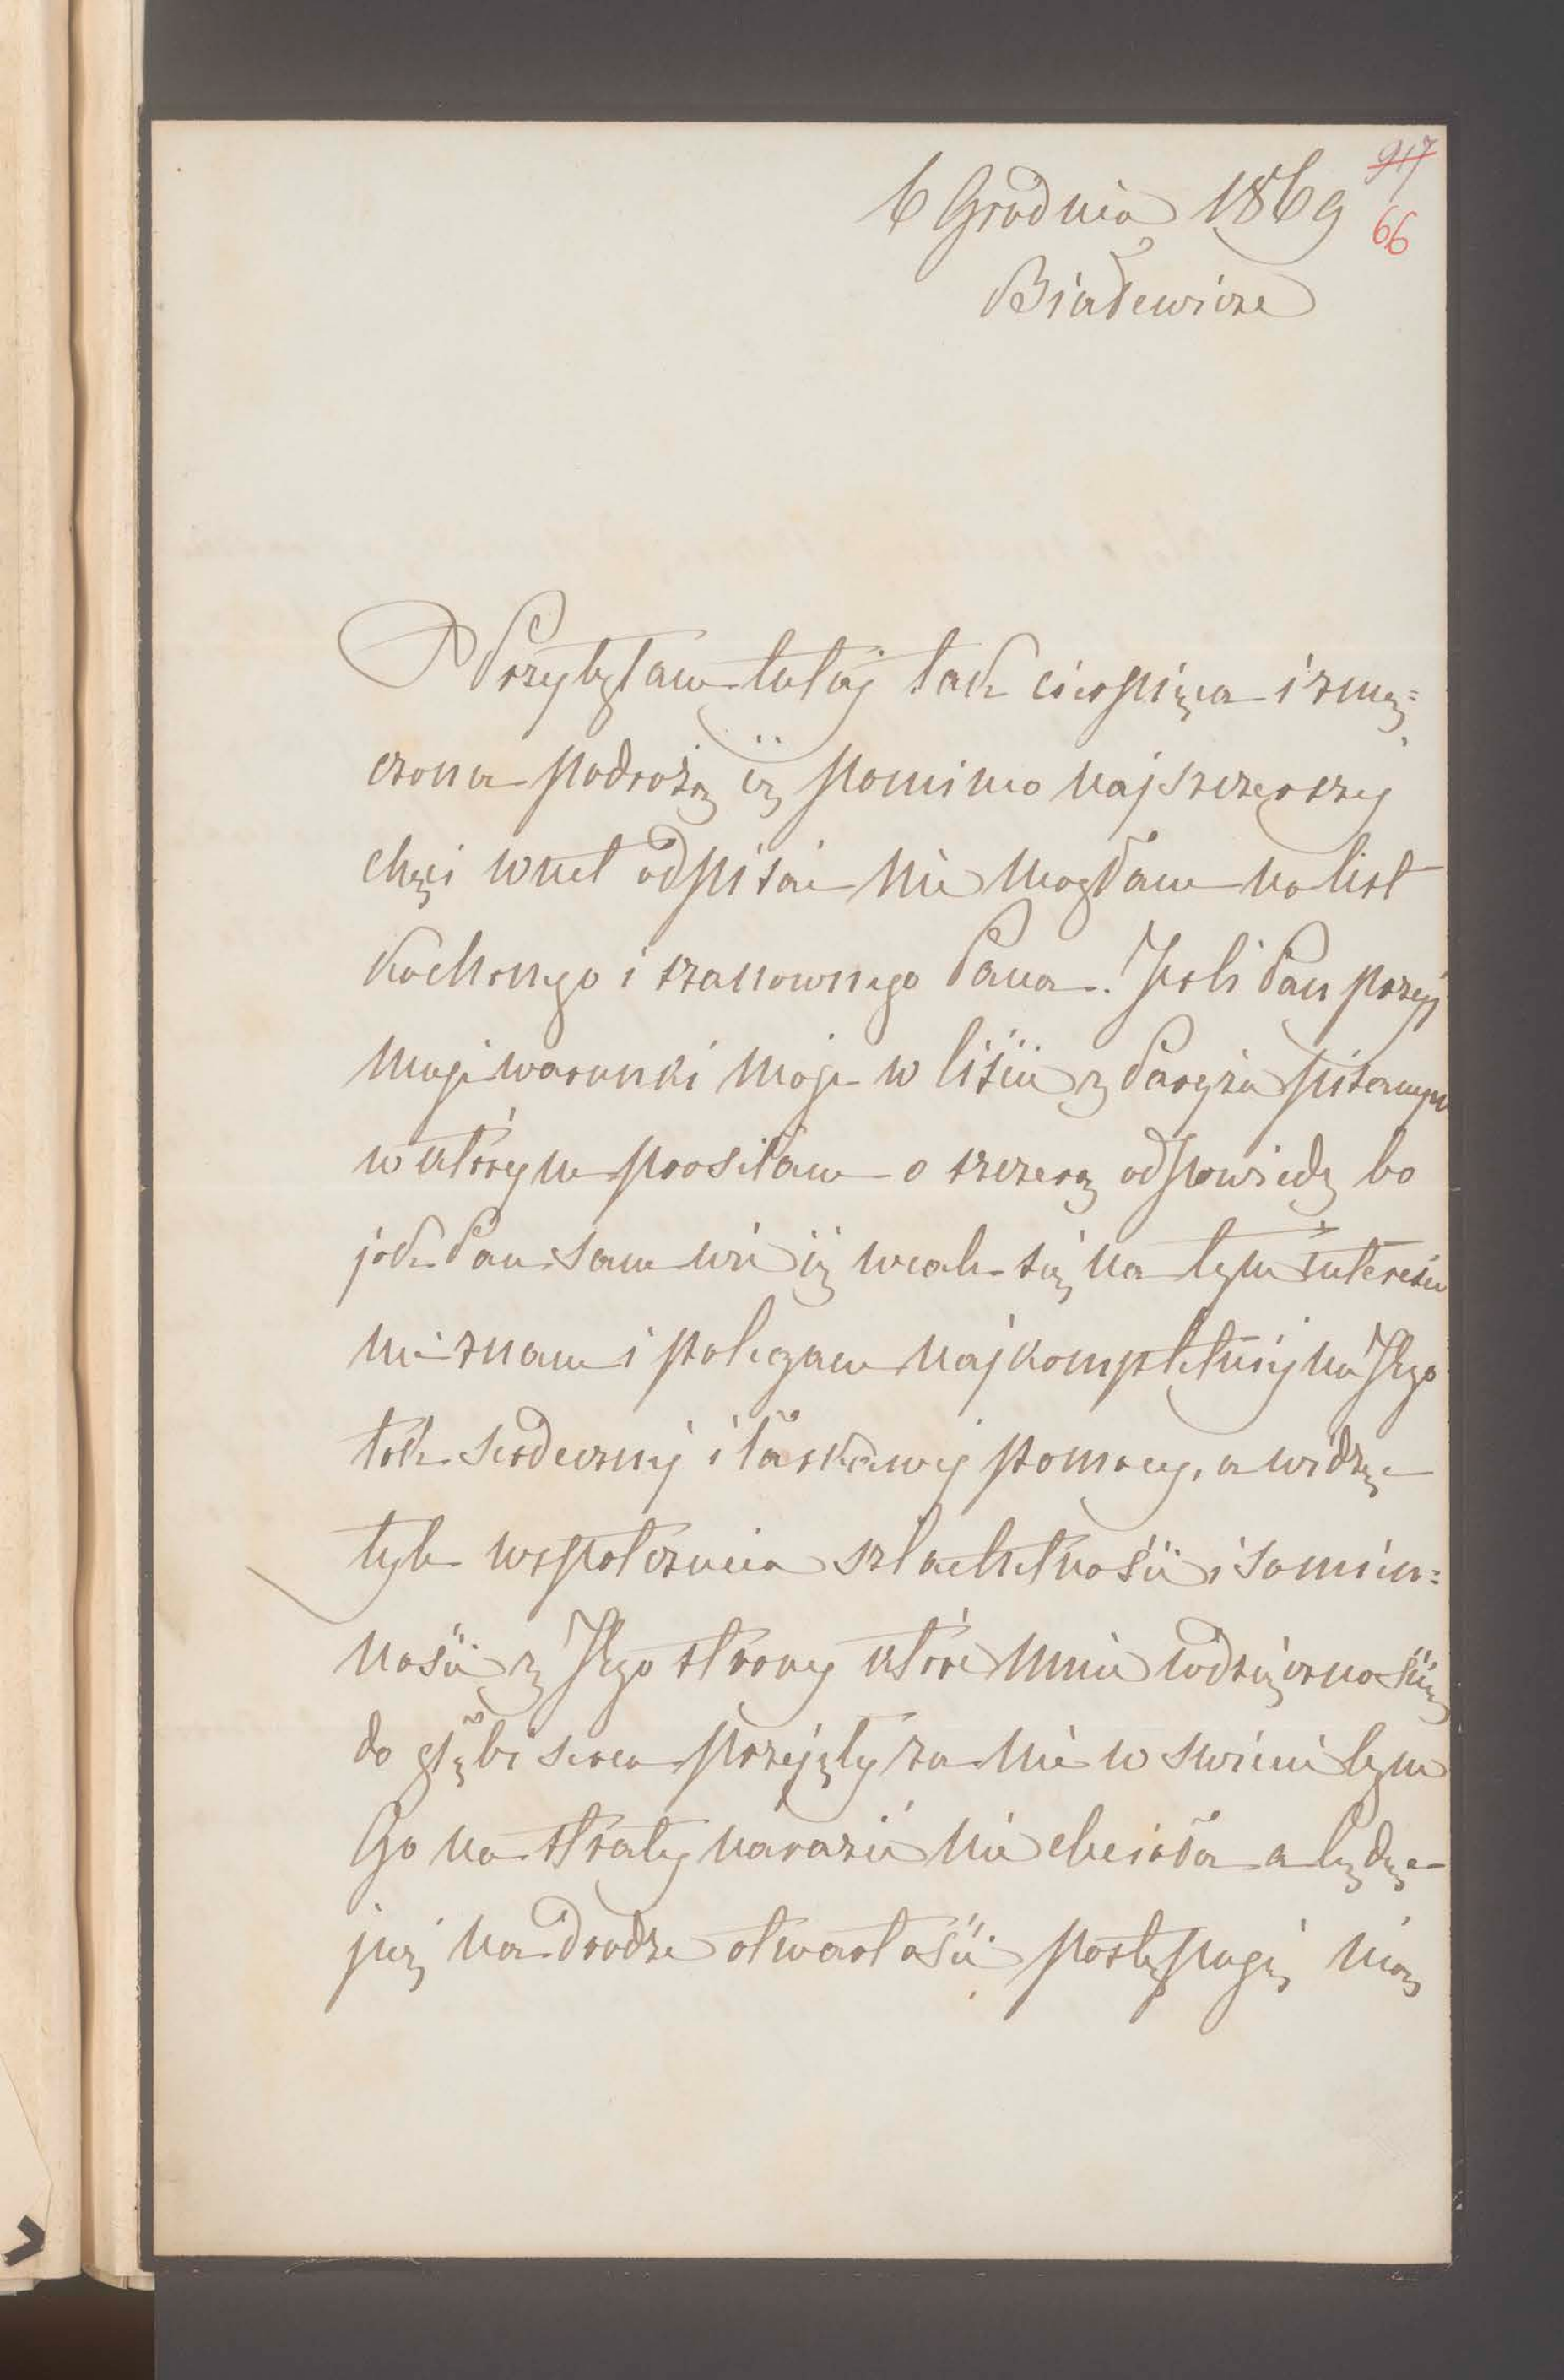 917
6 Grudnia 1869
66
Białewicze
Przybyłam tutaj tak cierpiąca i zmę=
czona podrożą iż pomimo najszczerszej
chęci wnet odpisać nie mogłam na list
kochanego i szanownego Pana. Jeśli Pan przyj
muje warunki moje w liście z Paryża pisanym
w którym prosiłam o szczerą odpowiedz bo
jak Pan sam wie iż wcale się na tym interesie
nie znam i polegam najkompletniej na Jego
tak serdecznej i łaskawej pomocy, a widzę
tyle wspołczucia szlachetności i sumien=
ności z Jego strony które mnie wdzięcznością
do głębi serca przejęły za nie w świecie bym
Go na straty narazić nie chciała a będąc
już na drodze otwartości postępuję nią